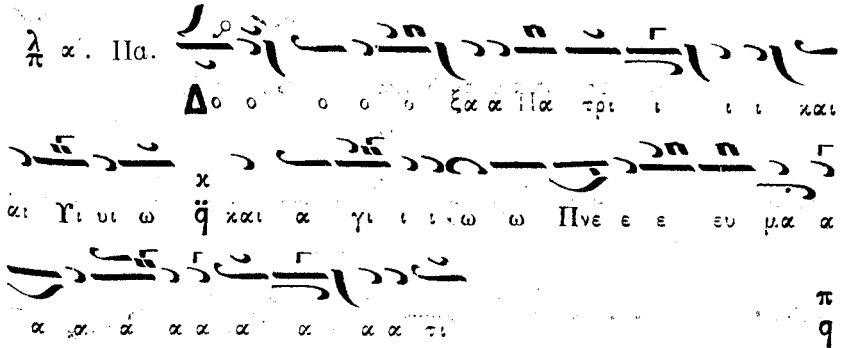 λ/π α΄. Πα.
Δο ο ο ο ο ξα α Πα τρι ι ι ι και
αι Υι υι ω και α γι ι ι ω ω Πνε ε ε ευ μα α
α α α α α α α α α τι